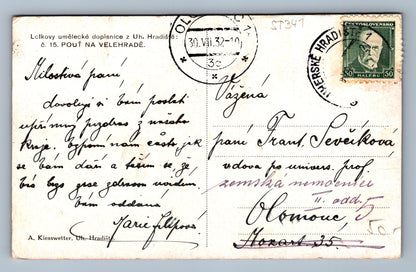 Lolkovy umělecké dopisnice z Uh. Hradiště:
č. 15. POUŤ NA VELEHRADĚ.
Milostivá paní
dovoluji si Vám poslati
upřímný pozdrav z našeho
kraje. Vzpomínám často jak
se Vám daří a těším se že
Vás
Vám oddaná
Marie Filipová
A. Kiesswetter, Uh. Hradiště
30.VII.32-10
3c
ST341
UHERSKÉ HRADIŠTĚ 1
ČESKOSLOVENSKO
50 HALÉŘŮ 50
Vážená
paní Frant. Ševčíková
vdova po univers. prof.
zemská nemocnice
II. odd. 5
Olomouc
Mozart 35.
50.-